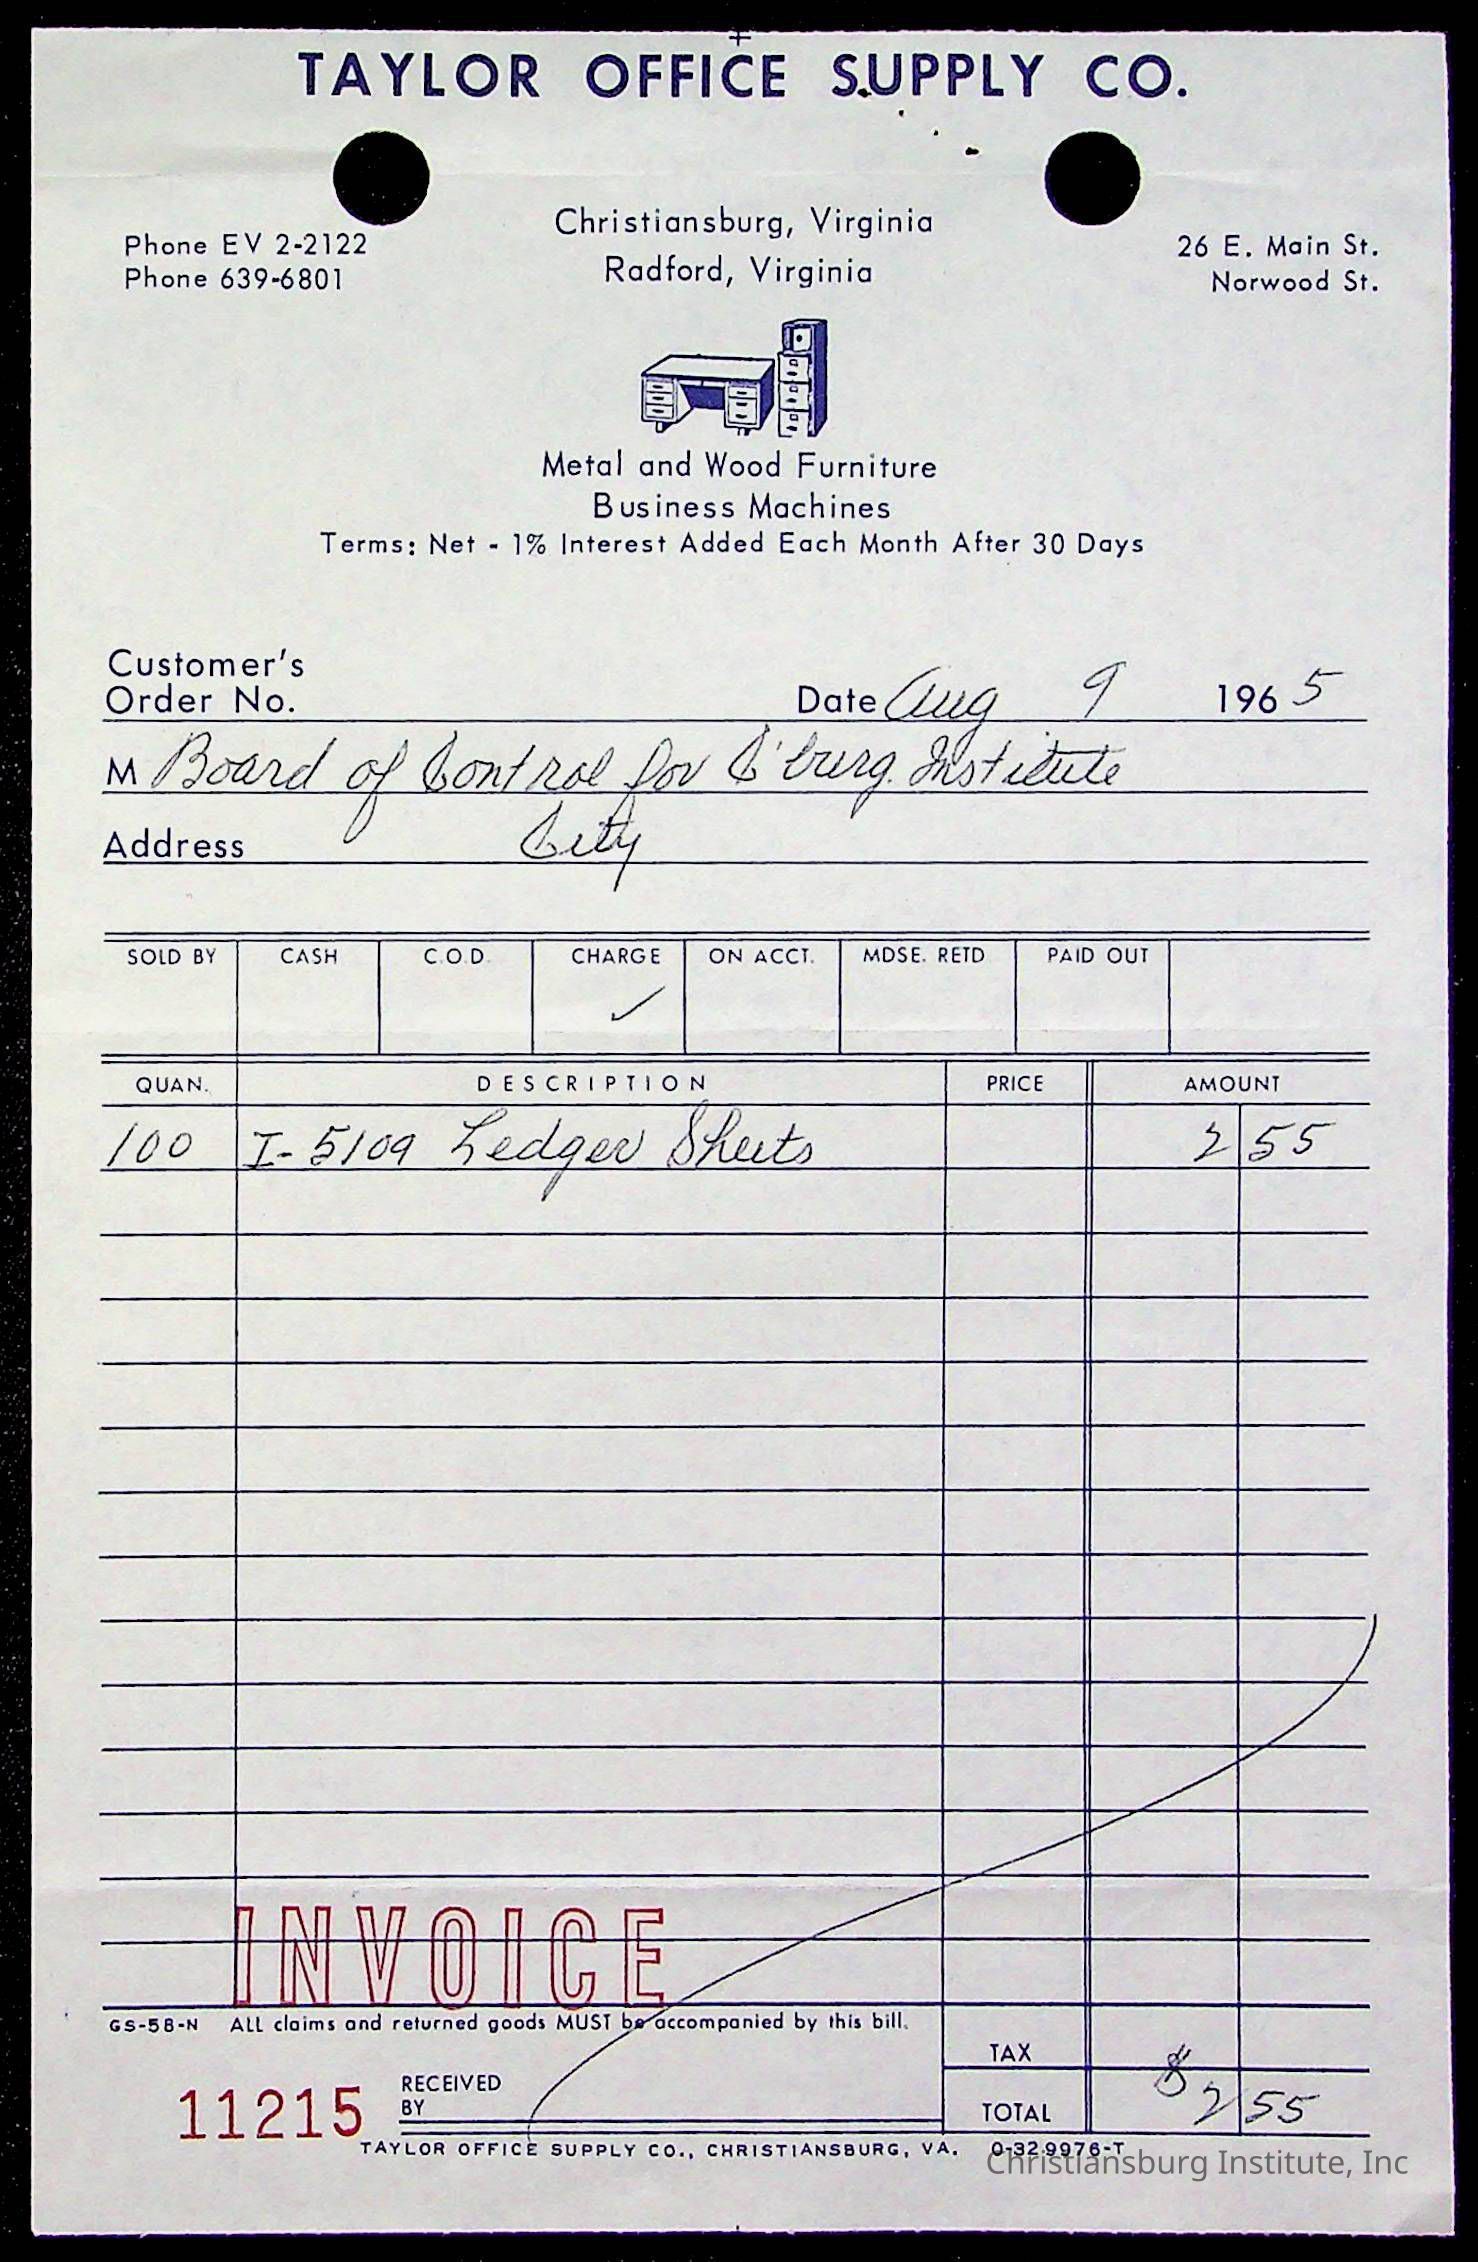 TAYLOR OFFICE SUPPLY CO.
Christiansburg, Virginia
Radford, Virginia
Phone EV 2-2122
Phone 639-6801
26 E. Main St.
Norwood St.
Metal and Wood Furniture
Business Machines
Terms: Net - 1% Interest Added Each Month After 30 Days
Customer's
Order No.
Date Aug 9 1965
M Board of Control for C'burg. Institute
Address City
SOLD BY CASH C.O.D. CHARGE ON ACCT. MDSE. RETD PAID OUT
✓
QUAN. DESCRIPTION PRICE AMOUNT
100 I-5109 Ledger Sheets 2 55
INVOICE
GS-58-N ALL claims and returned goods MUST be accompanied by this bill.
TAX
11215 RECEIVED
BY
TOTAL $ 2 55
TAYLOR OFFICE SUPPLY CO., CHRISTIANSBURG, VA. 0-329976-T
Christiansburg Institute, Inc